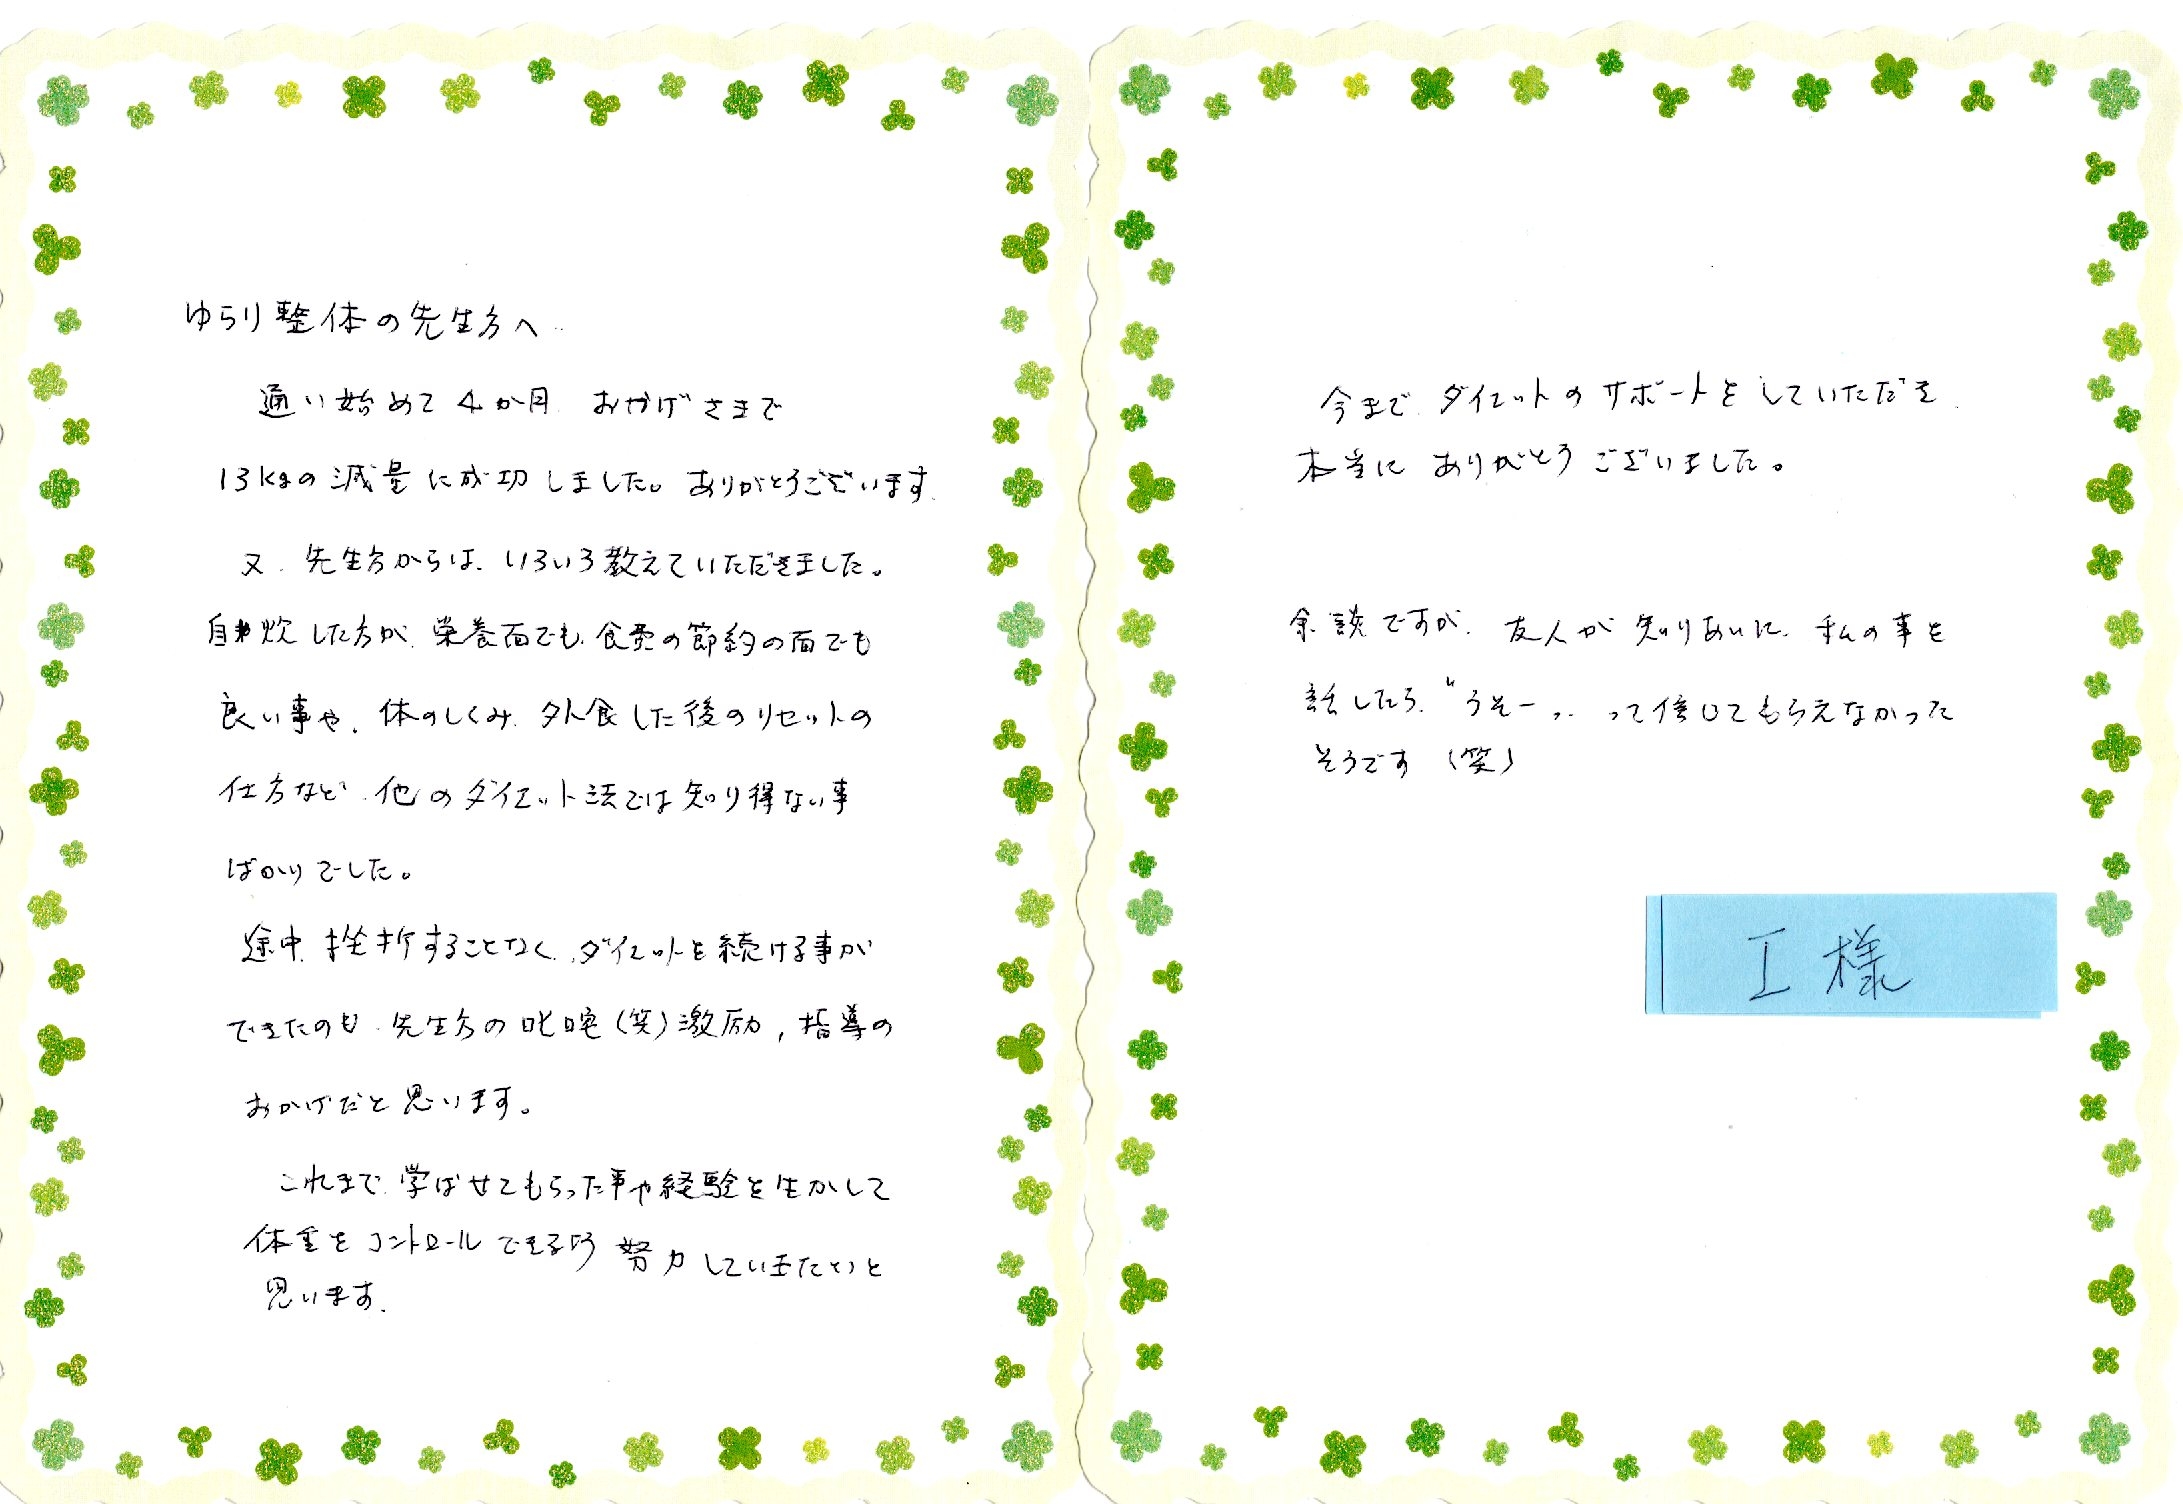 ゆらり整体の先生方へ
通い始めて4か月 おかげさまで
13kgの減量に成功しました。ありがとうございます
又、先生方からは、いろいろ教えていただきました。
自炊した方が、栄養面でも、食費の節約の面でも
良い事や、体のしくみ、外食した後のリセットの
仕方など、他のダイエット法では知り得ない事
ばかりでした。
途中、挫折することなく、ダイエットを続ける事が
できたのも、先生方の叱咤(笑)激励,指導の
おかげだと思います。
これまで、学ばせてもらった事や経験を生かして
体重をコントロールできる様 努力していきたいと
思います。
今まで、ダイエットのサポートをしていただき
本当に ありがとうございました。
余談ですが、友人が知りあいに、私の事を
話したら、"うそーっ" って信じてもらえなかった
そうです(笑)
I 様